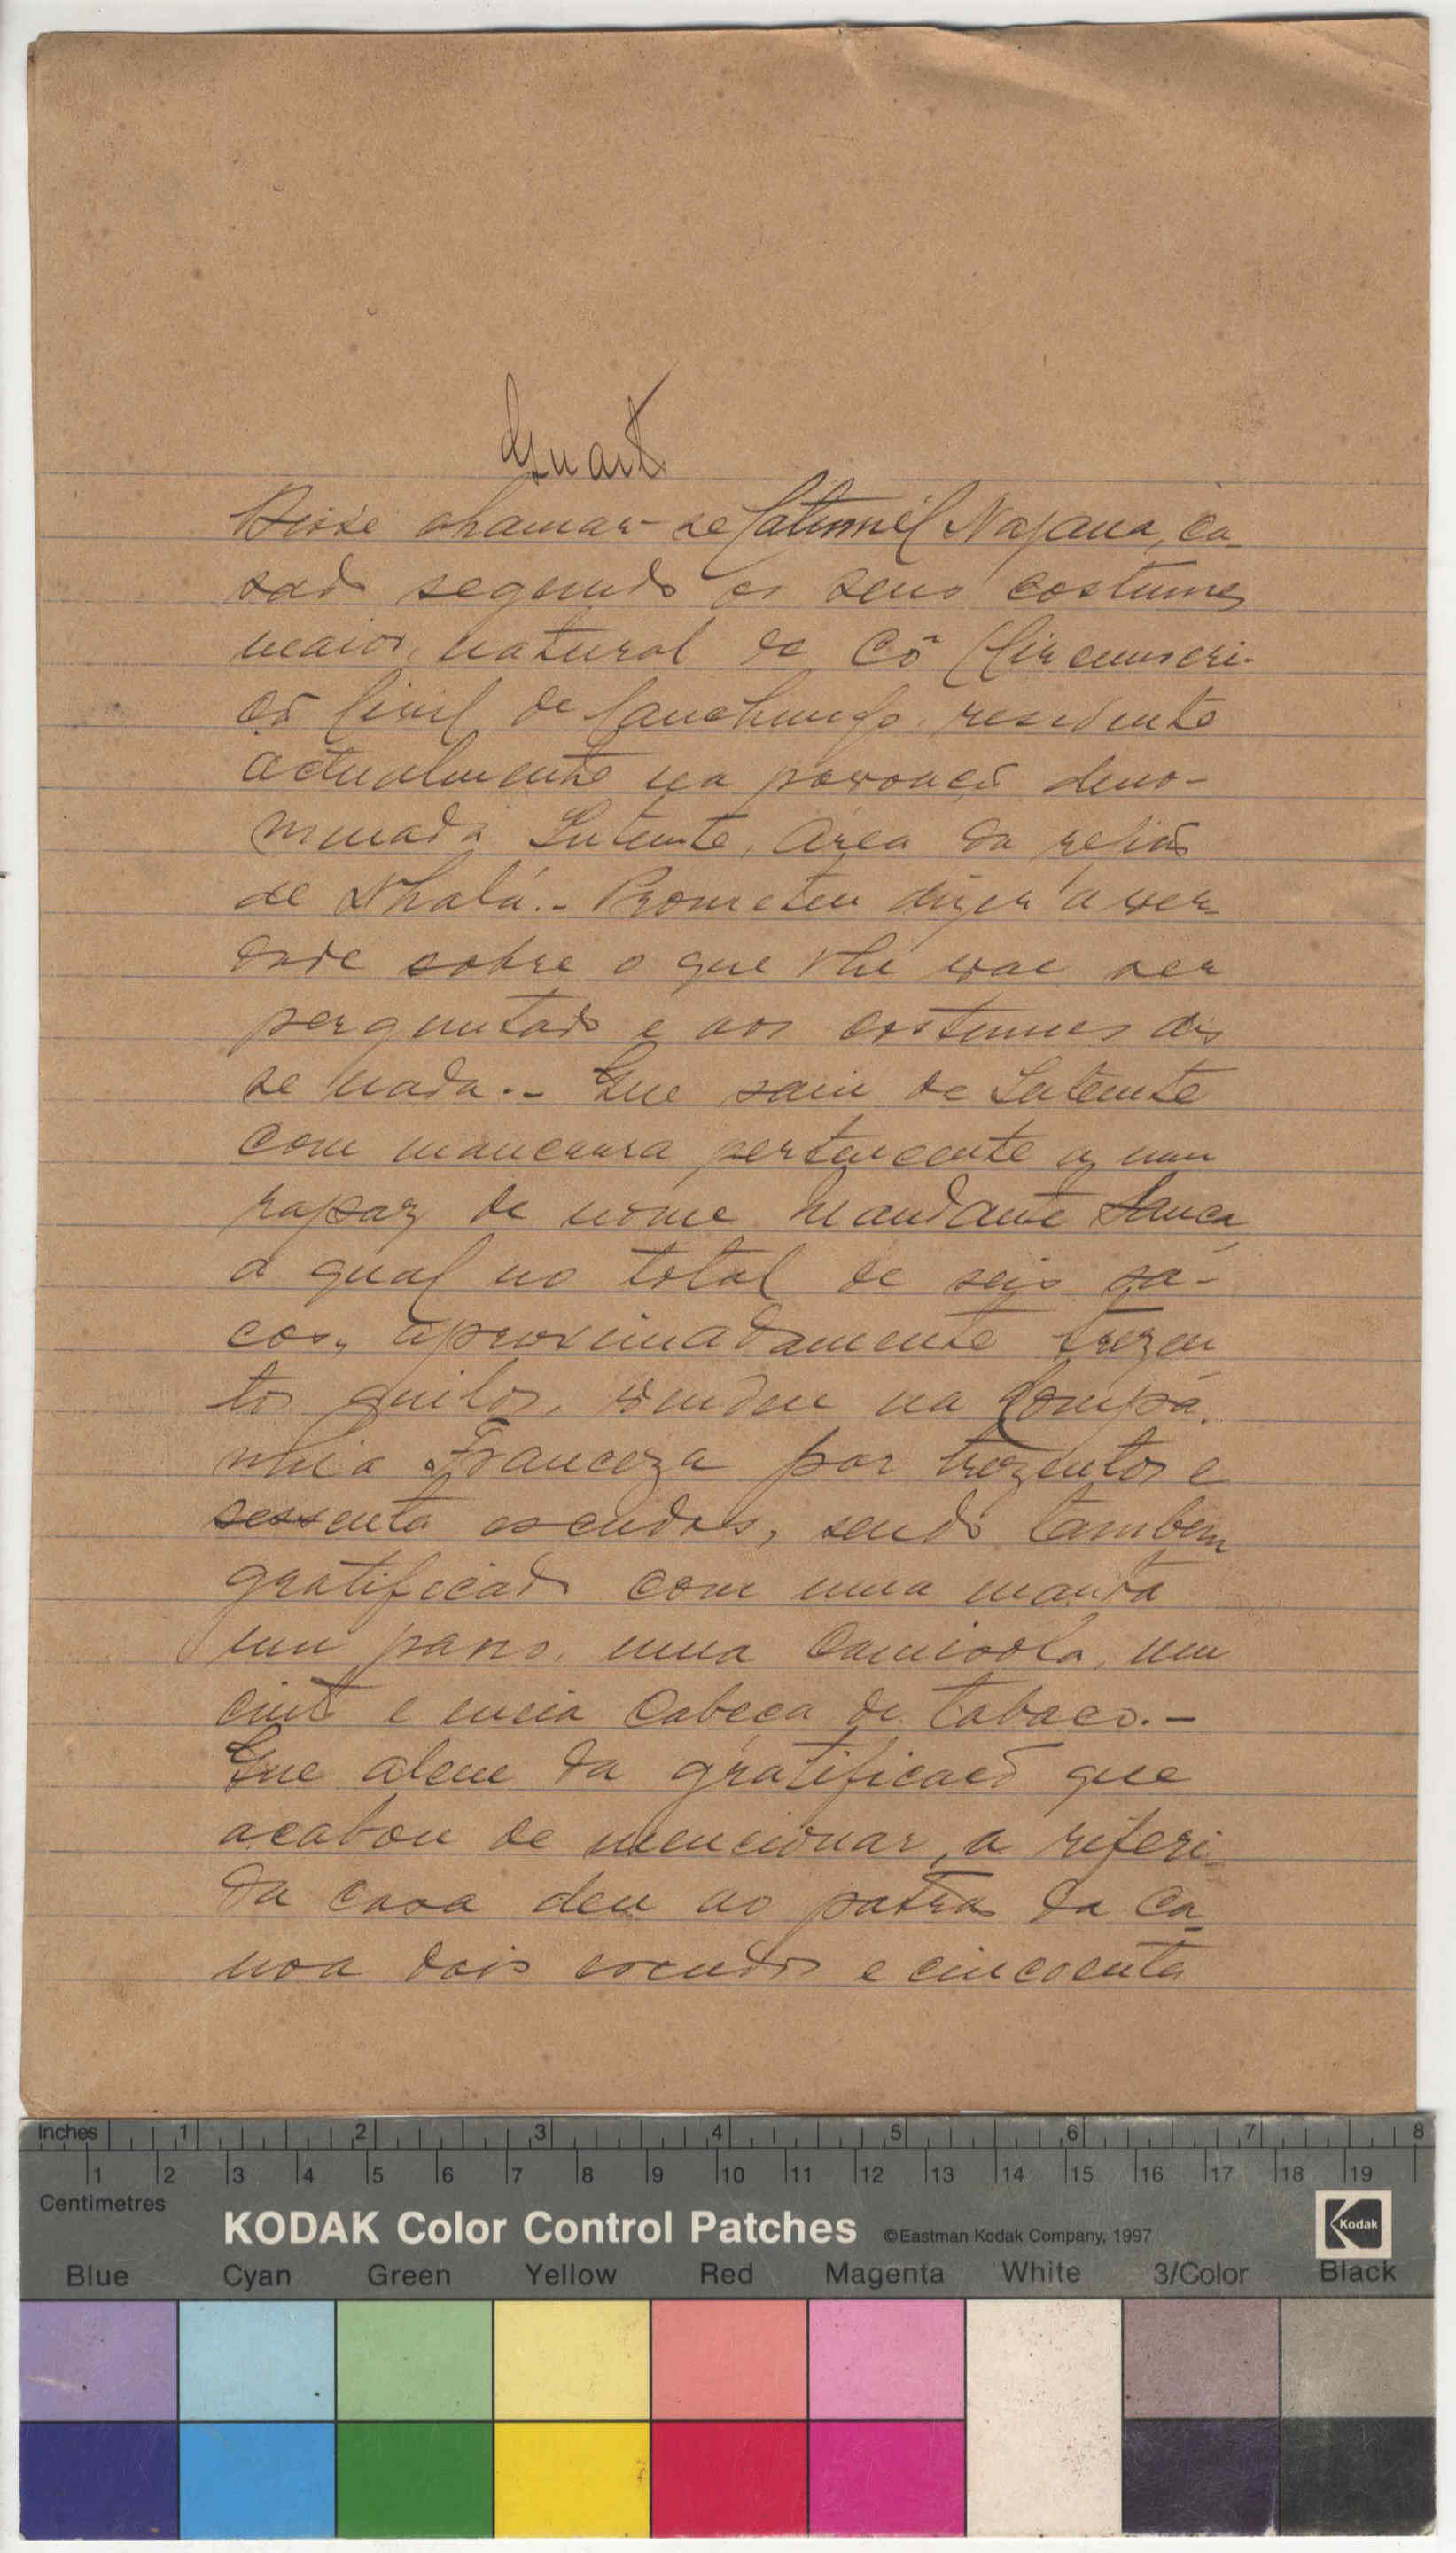 Quarto
Disse chamar-se Najana, ca-
sado segundo os seus costumes
maior, natural de Có (Circunscri-
ção Civil de Canchungo residente
actualmente na povoação deno-
minada area da região
de Nhalá.- Prometeu dizer a ver-
dade sobre o que lhe vae ser
perguntado e aos costumes dis
se nada.- Que saiu de
com mancarra pertencente a um
rapaz de nome Mandante Sanca
a qual no total de seis sa-
cos, aproximadamente trezen
tos quilos, vendeu na Compa-
nhia Franceza por trezentos e
sessenta escudos, sendo tambem
gratificado com uma manta
um pano, uma camisola, um
cinto e meia cabeça de tabaco.-
Que alem da gratificação que
acabou de mencionar, a referi-
da casa deu ao patrão da ca-
noa dois escudos e cincoenta
Inches 1 2 3 4 5 6 7 8
1 2 3 4 5 6 7 8 9 10 11 12 13 14 15 16 17 18 19
Centimetres
KODAK Color Control Patches ©Eastman Kodak Company, 1997 Kodak
Blue Cyan Green Yellow Red Magenta White 3/Color Black